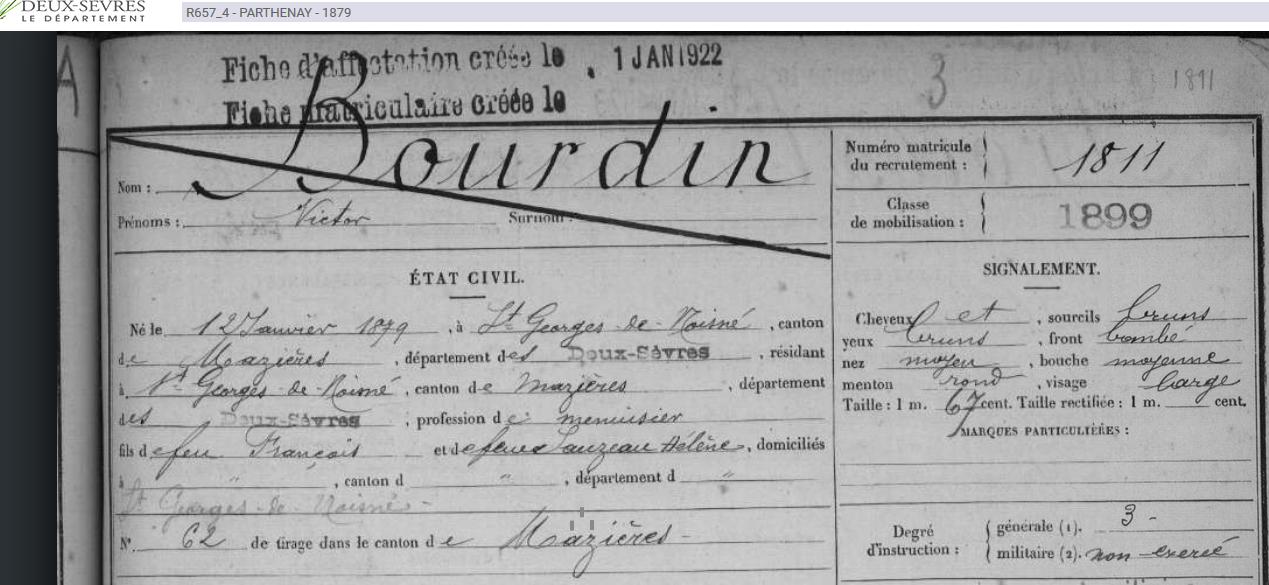 DEUX-SÈVRES
LE DÉPARTEMENT
R657_4 - PARTHENAY - 1879
Fiche d'affectation créée le 1 JAN 1922
Fiche matriculaire créée le
3
1811
Nom : Bourdin
Prénoms : Victor Surnom :
Numéro matricule du recrutement : 1811
Classe de mobilisation : 1899
ÉTAT CIVIL.
Né le 12 Janvier 1879, à St Georges-de-Noisné, canton
de Mazières, département des Deux-Sèvres, résidant
à St Georges-de-Noisné, canton de Mazières, département
des Deux-Sèvres, profession de menuisier
fils de feu François et de feue Lauzeau Hélène, domiciliés
à " , canton d " , département d "
St Georges-de-Noisné-
N° 62 de tirage dans le canton de Mazières-
SIGNALEMENT.
Cheveux et , sourcils bruns
yeux bruns , front bombé
nez moyen , bouche moyenne
menton rond , visage large
Taille : 1 m. 67 cent. Taille rectifiée : 1 m. cent.
MARQUES PARTICULIÈRES :
Degré d'instruction : générale (1). 3 -
militaire (2). non-exercé